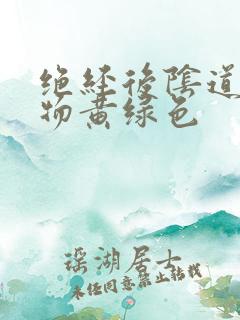 绝经后阴道
物黄绿色
瑶湖居士
未经同意禁止转载